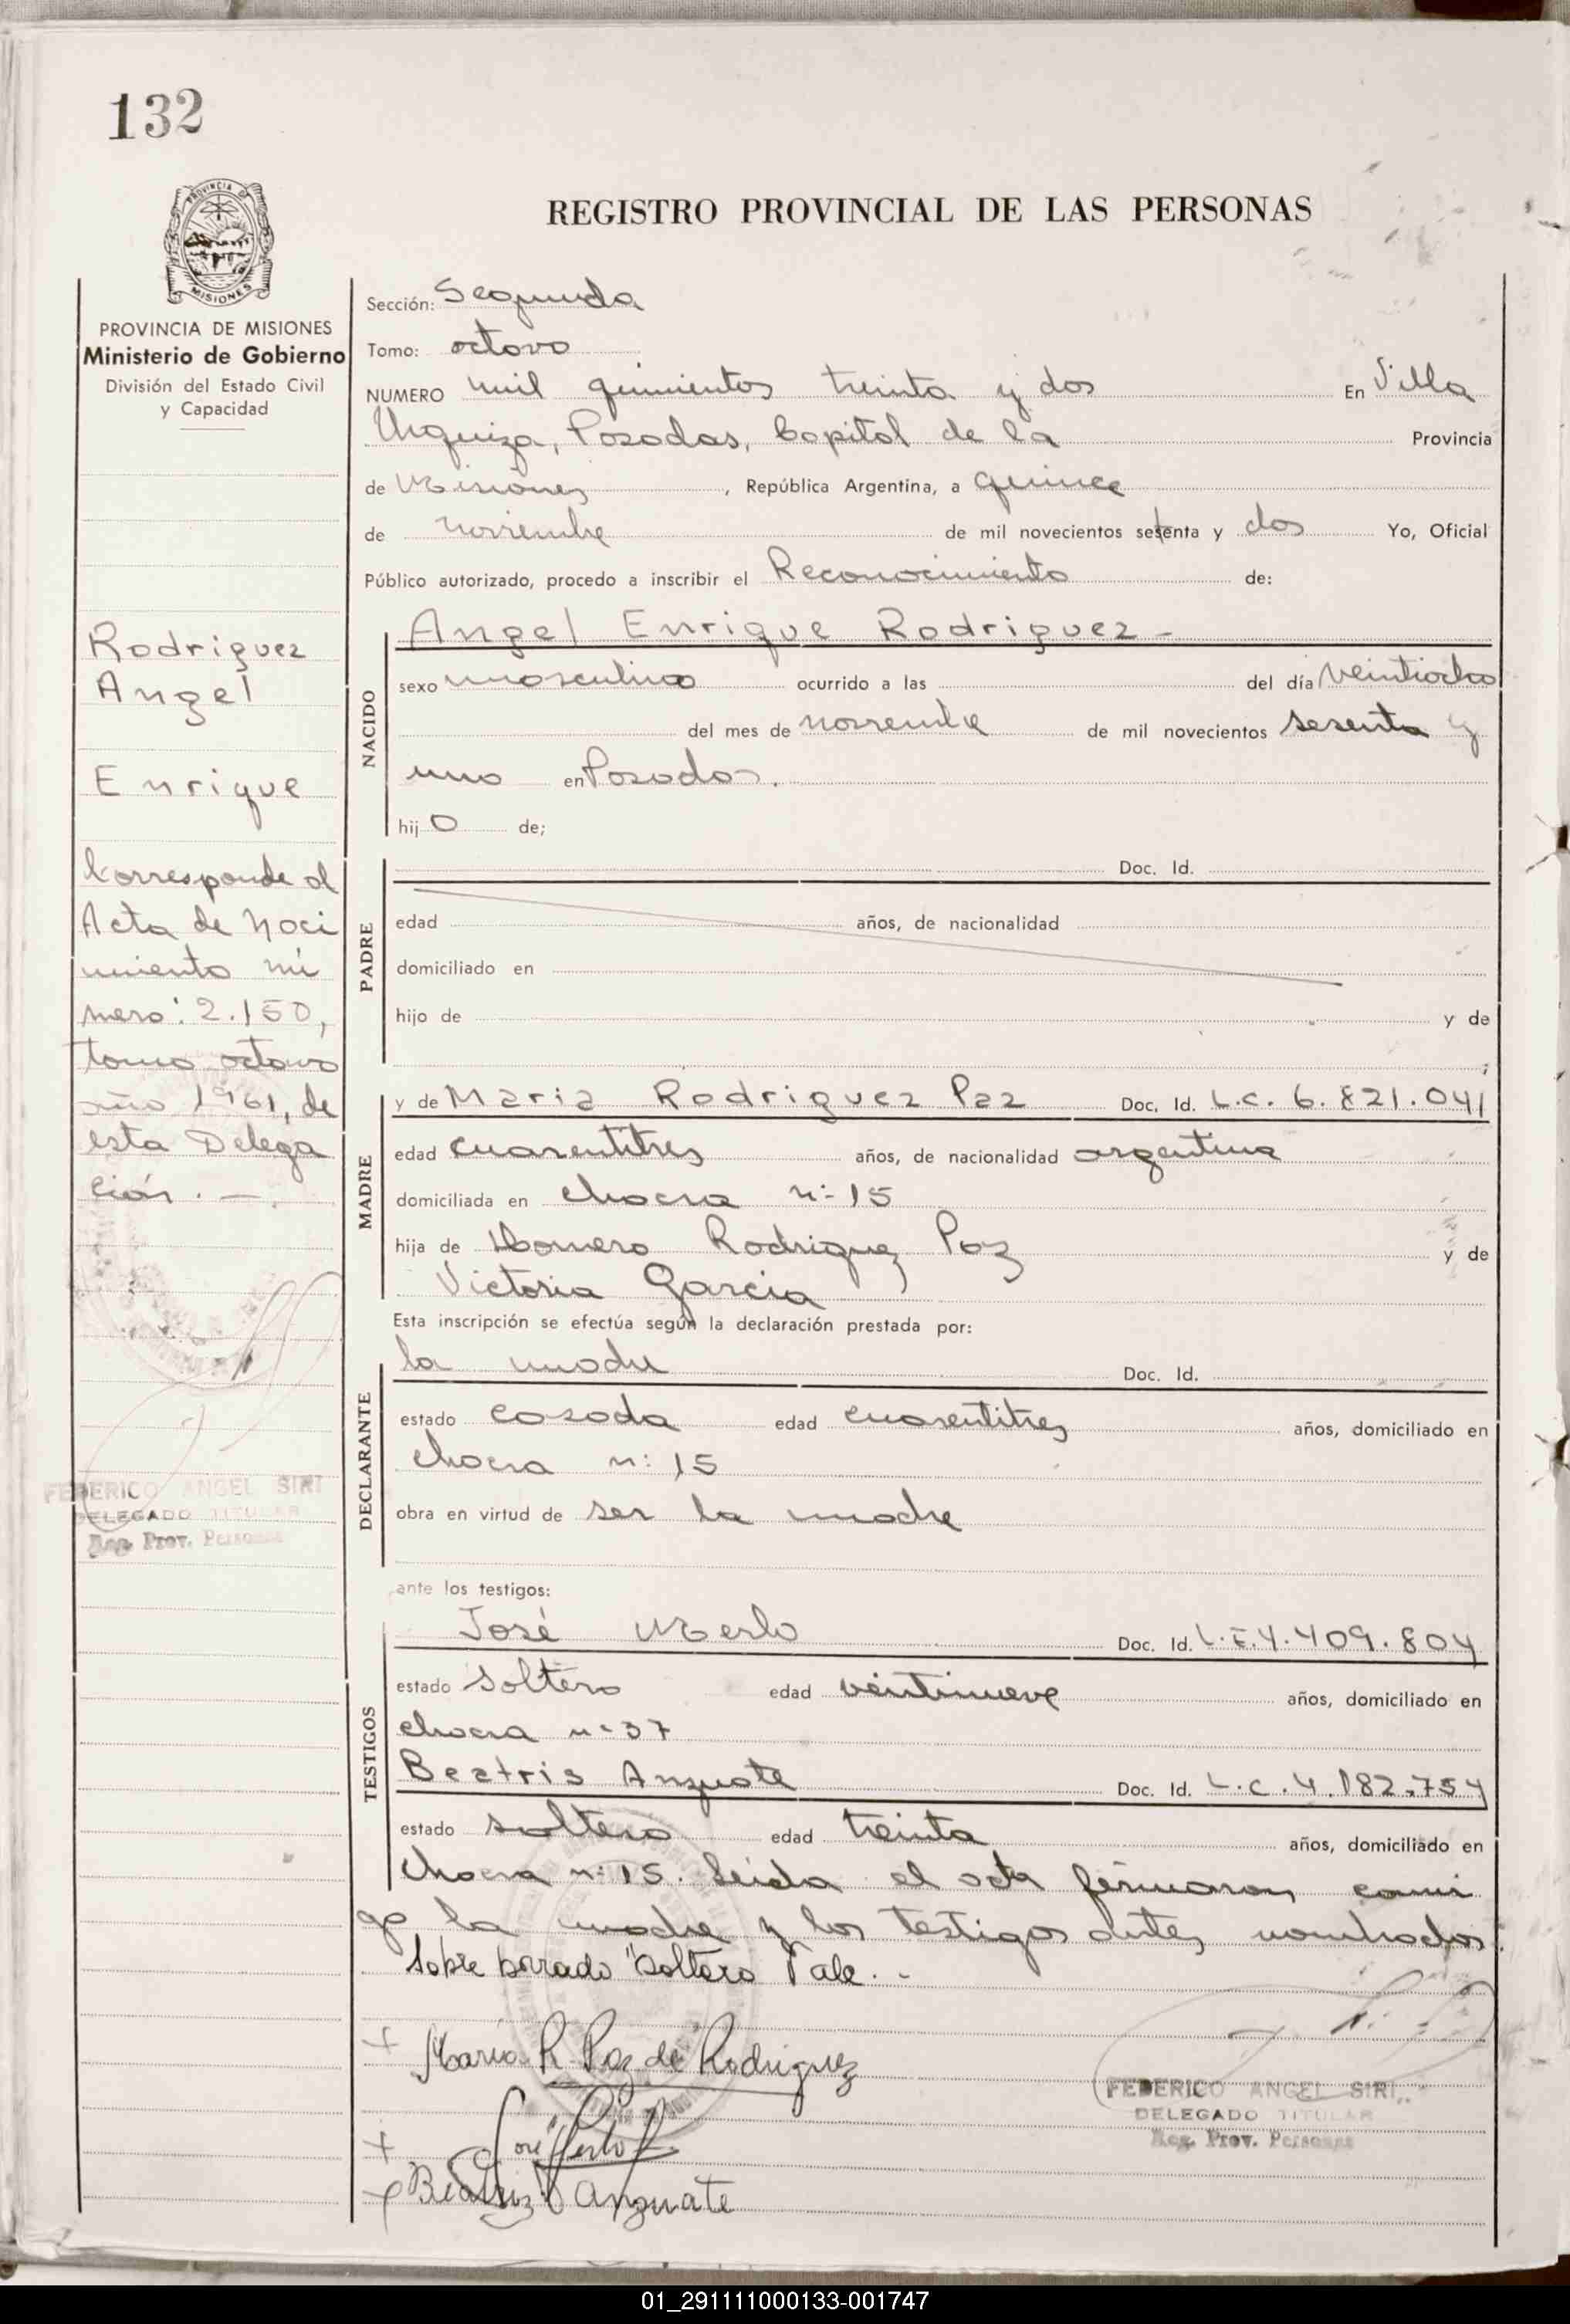 132
PROVINCIA DE
MISIONES
REGISTRO PROVINCIAL DE LAS PERSONAS
PROVINCIA DE MISIONES
Ministerio de Gobierno
División del Estado Civil
y Capacidad
Rodriguez
Angel
Enrique
Corresponde al
Acta de Naci
miento nú
mero: 2.150,
tomo octavo
año 1961, de
esta Delega
ción. —
FEDERICO ANGEL SIRI
DELEGADO TITULAR
Reg. Prov. Personas
Sección: Segunda
Tomo: octavo
NUMERO mil quinientos treinta y dos En Villa
Urquiza, Posadas, Capital de la Provincia
de Misiones, República Argentina, a quince
de noviembre de mil novecientos setenta y dos Yo, Oficial
Público autorizado, procedo a inscribir el Reconocimiento de:
NACIDO
Angel Enrique Rodriguez -
sexo masculino ocurrido a las del día veintiocho
del mes de noviembre de mil novecientos sesenta y
uno en Posadas.
hijo de;
PADRE
Doc. Id.
edad años, de nacionalidad
domiciliado en
hijo de y de
;
MADRE
y de Maria Rodriguez Paz Doc. Id. L.C. 6.821.041
edad cuarentitres años, de nacionalidad argentina
domiciliada en chacra n: 15
hija de Homero Rodriguez Paz y de
Victoria Garcia
Esta inscripción se efectúa según la declaración prestada por:
DECLARANTE
la madre Doc. Id.
estado casada edad cuarentitres años, domiciliado en
chacra n: 15
obra en virtud de ser la madre
ante los testigos:
TESTIGOS
José Merlo Doc. Id. L.E.4.409.804
estado soltero edad veintinueve años, domiciliado en
chacra n: 37
Beatris Anzuate Doc. Id. L.C.4.182.754
estado soltera edad treinta años, domiciliado en
chacra n: 15. Leida el acta firmaron conmi
go la madre y los testigos antes nombrados.
Sobre borrado "Soltero Vale. -
Maria R. Paz de Rodriguez
José Merlo
Beatriz Anzuate
FEDERICO ANGEL SIRI
DELEGADO TITULAR
Reg. Prov. Personas
01_291111000133-001747